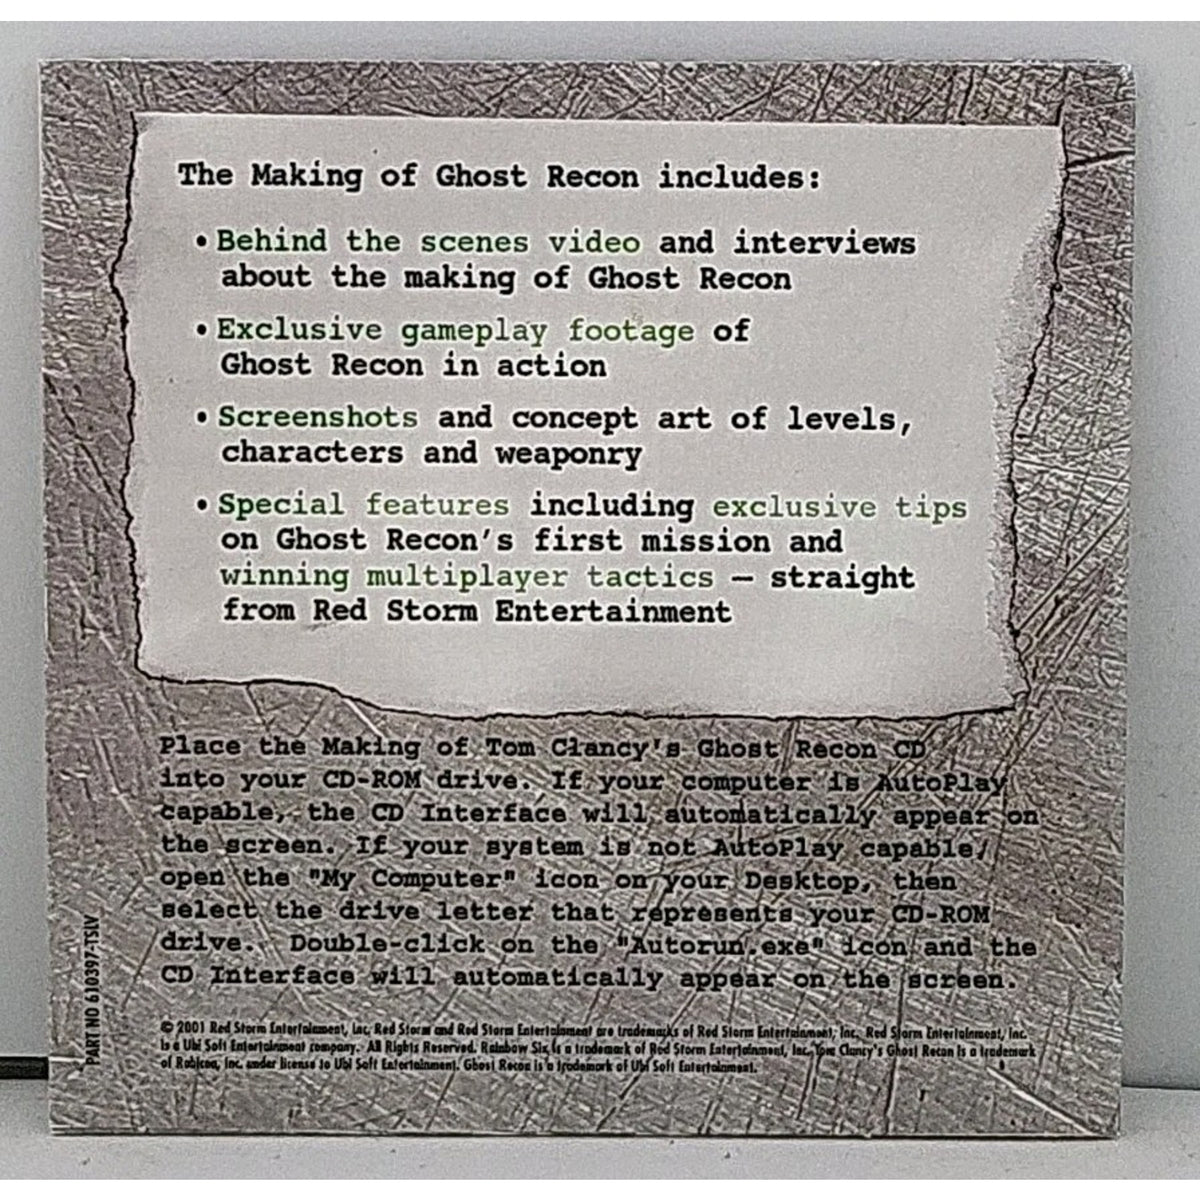 The Making of Ghost Recon includes:
• Behind the scenes video and interviews
about the making of Ghost Recon
• Exclusive gameplay footage of
Ghost Recon in action
• Screenshots and concept art of levels,
characters and weaponry
• Special features including exclusive tips
on Ghost Recon's first mission and
winning multiplayer tactics – straight
from Red Storm Entertainment
Place the Making of Tom Clancy's Ghost Recon CD
into your CD-ROM drive. If your computer is AutoPlay
capable, the CD Interface will automatically appear on
the screen. If your system is not AutoPlay capable,
open the "My Computer" icon on your Desktop, then
select the drive letter that represents your CD-ROM
drive. Double-click on the "Autorun.exe" icon and the
CD Interface will automatically appear on the screen.
© 2001 Red Storm Entertainment, Inc. Red Storm and Red Storm Entertainment are trademarks of Red Storm Entertainment, Inc. Red Storm Entertainment, Inc.
is a Ubi Soft Entertainment company. All Rights Reserved. Rainbow Six is a trademark of Red Storm Entertainment, Inc. Tom Clancy's Ghost Recon is a trademark
of Rubicon, Inc. under license to Ubi Soft Entertainment. Ghost Recon is a trademark of Ubi Soft Entertainment.
PART NO 610397-TSIV